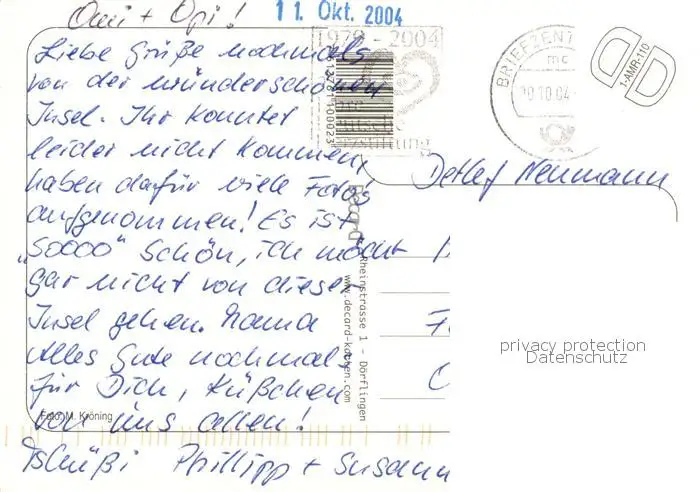 Omi + Opi!
11. Okt. 2004
Liebe Grüße nochmals
von der wunderschönen
Insel. Ihr konntet
leider nicht kommen,
haben dafür viele Foto's
aufgenommen! Es ist
"soooo" schön, ich möcht
gar nicht von dieser
Insel gehen. Mama
Alles Gute nochmal
für Dich, Küßchen
von uns allen!
Tschüßi Phillipp + Susann
Foto: M. Kröning
1979 - 2004
613781100023
BRIEFZENT
mc
10.04
1-AMR-110
Detlef Neumann
decard
Rheinstrasse 1 - Dörflingen
www.decard-karten.com
privacy protection
Datenschutz